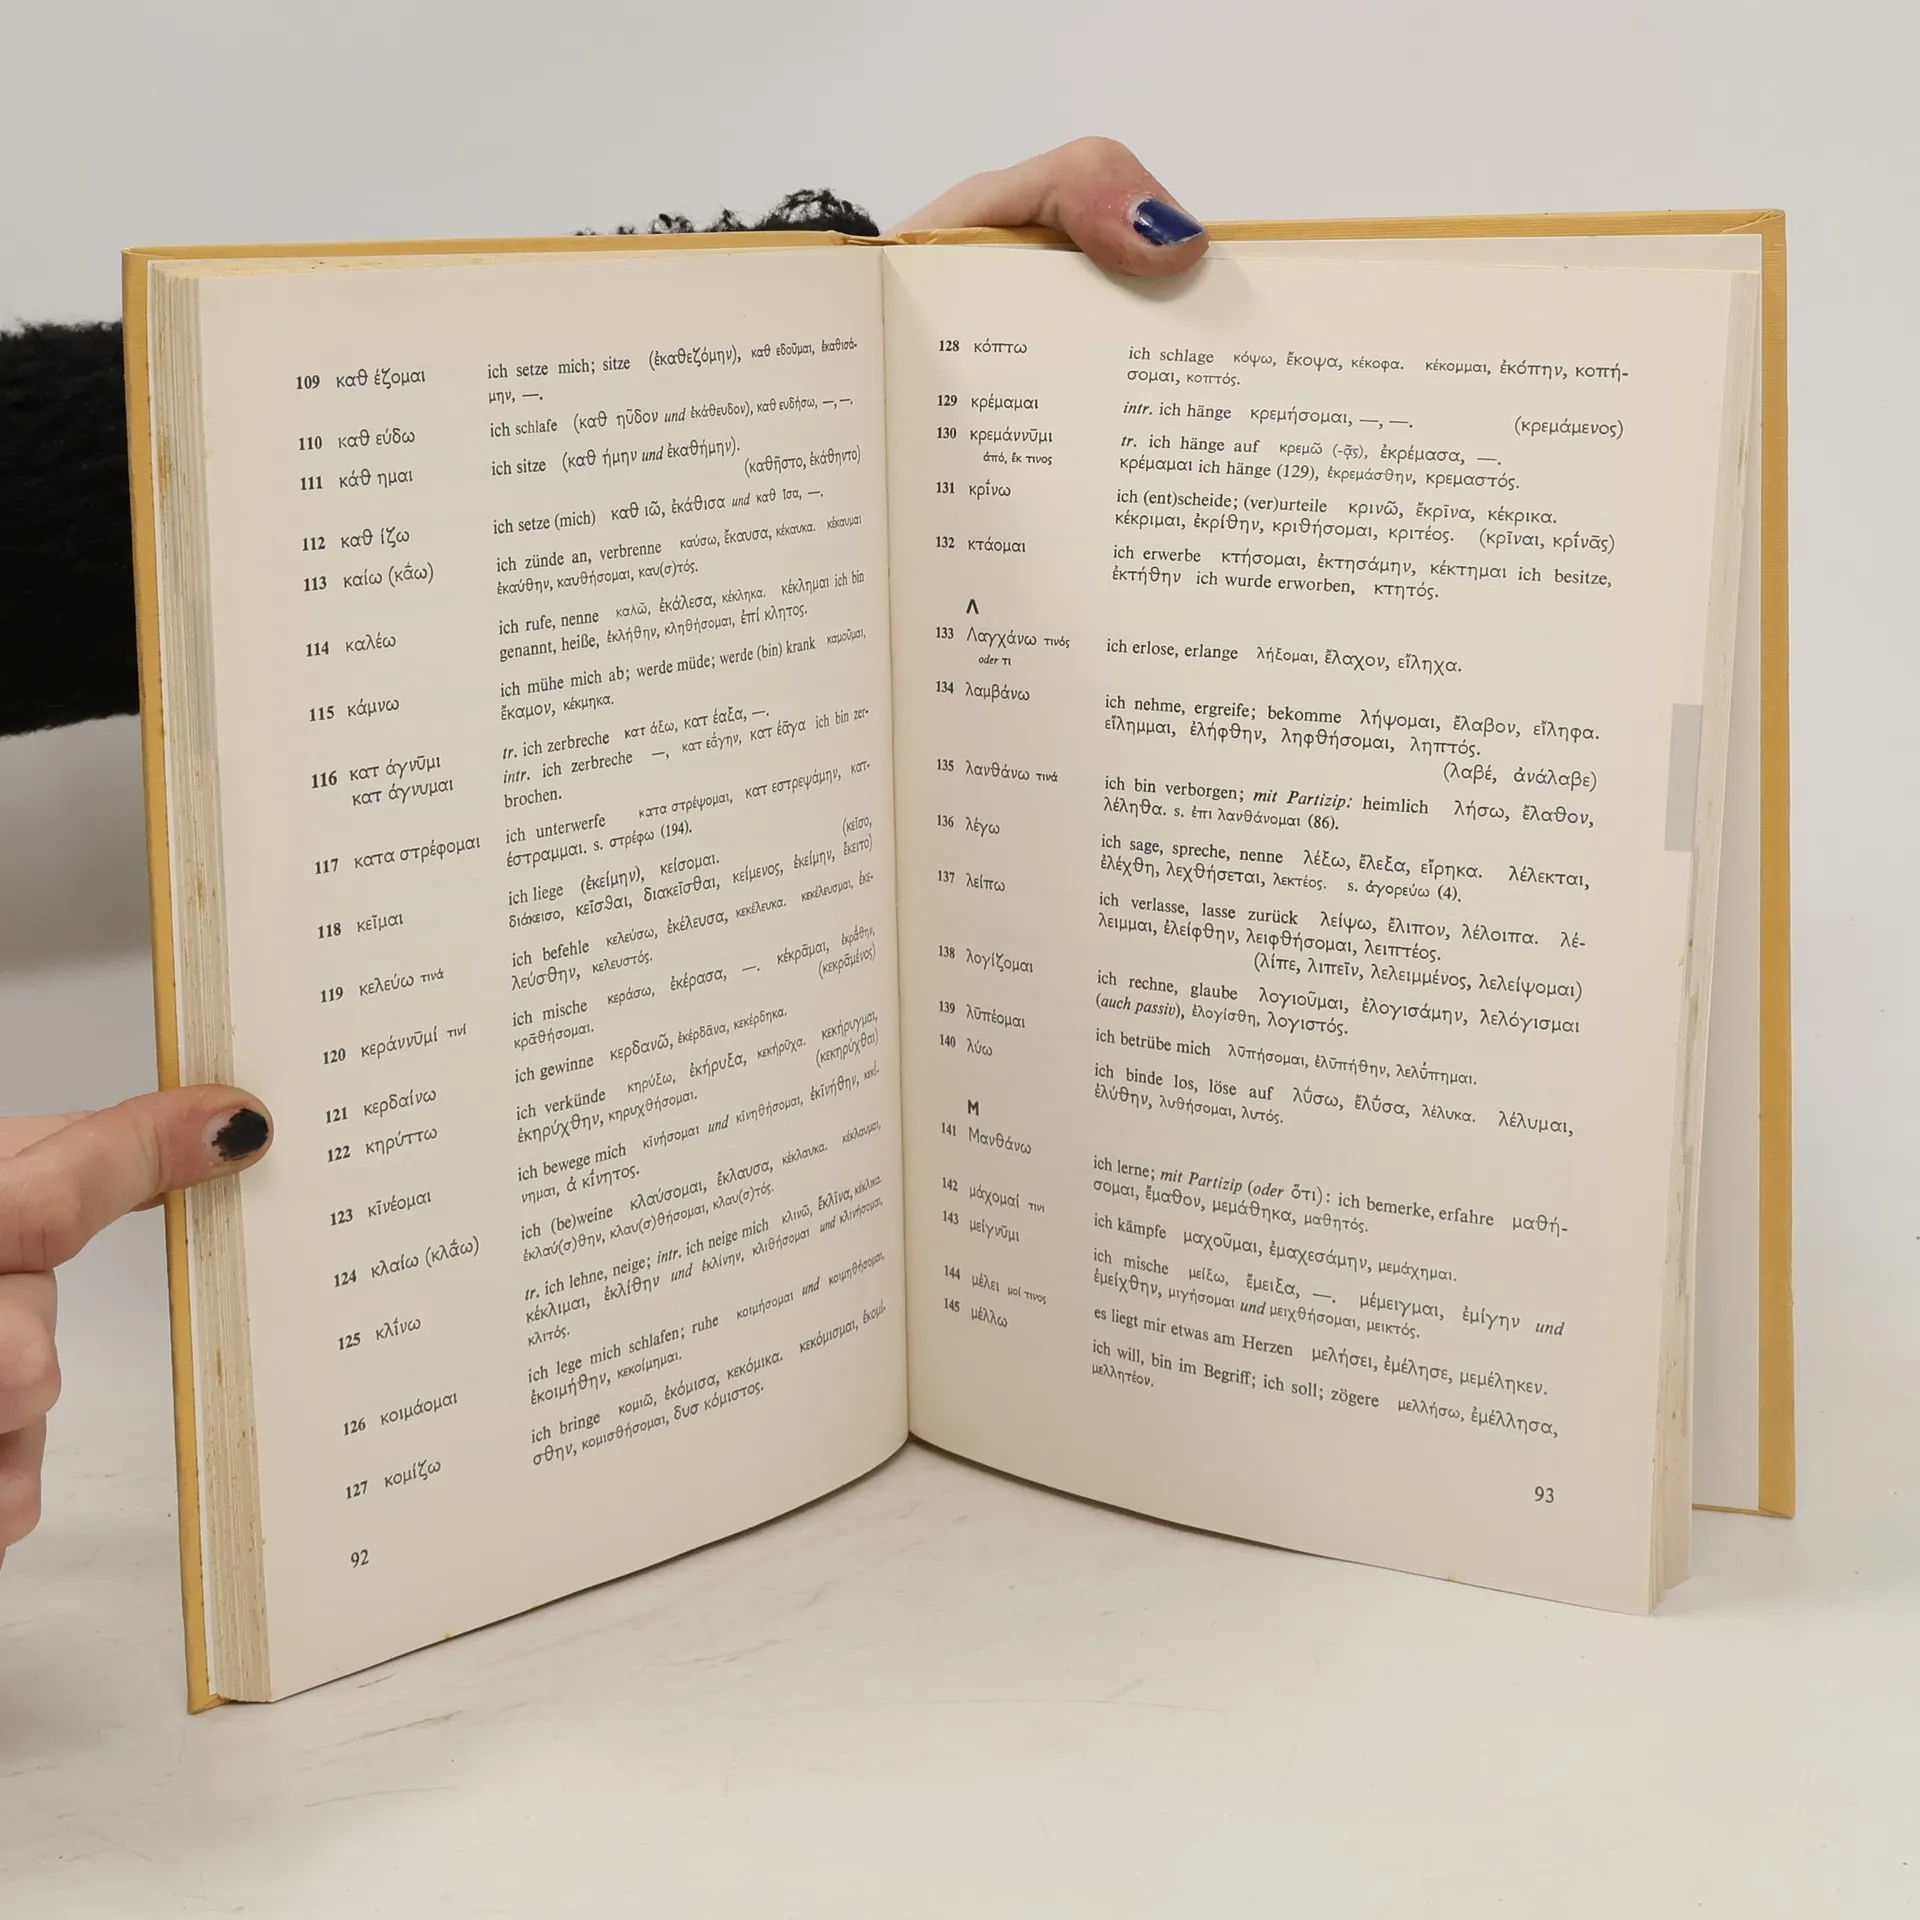 109 καθ έζομαι ich setze mich; sitze (ἐκαθεζόμην), καθ εδοῦμαι, ἐκαθισά-
μην, —.
110 καθ εύδω ich schlafe (καθ ηῦδον und ἐκάθευδον), καθ ευδήσω, —, —.
111 κάθ ημαι ich sitze (καθ ήμην und ἐκαθήμην).
(καθῆστο, ἐκάθηντο)
112 καθ ίζω ich setze (mich) καθ ιῶ, ἐκάθισα und καθ ῖσα, —.
113 καίω (κᾱ́ω) ich zünde an, verbrenne καύσω, ἔκαυσα, κέκαυκα. κέκαυμαι
ἐκαύθην, καυθήσομαι, καυ(σ)τός.
114 καλέω ich rufe, nenne καλῶ, ἐκάλεσα, κέκληκα. κέκλημαι ich bin
genannt, heiße, ἐκλήθην, κληθήσομαι, ἐπί κλητος.
115 κάμνω ich mühe mich ab; werde müde; werde (bin) krank καμοῦμαι,
ἔκαμον, κέκμηκα.
116 κατ άγνῡμι tr. ich zerbreche κατ άξω, κατ έαξα, —.
κατ άγνυμαι intr. ich zerbreche —, κατ εᾱ́γην, κατ έᾱγα ich bin zer-
brochen.
117 κατα στρέφομαι ich unterwerfe κατα στρέψομαι, κατ εστρεψάμην, κατ-
έστραμμαι. s. στρέφω (194).
118 κεῖμαι ich liege (ἐκείμην), κείσομαι. (κεῖσο,
διάκεισο, κεῖσθαι, διακεῖσθαι, κείμενος, ἐκείμην, ἔκειτο)
119 κελεύω τινά ich befehle κελεύσω, ἐκέλευσα, κεκέλευκα. κεκέλευσμαι, ἐκε-
λεύσθην, κελευστός.
120 κεράννῡμί τινί ich mische κεράσω, ἐκέρασα, —. κέκρᾱμαι, ἐκρᾱ́θην,
κρᾱθήσομαι. (κεκρᾱμένος)
121 κερδαίνω ich gewinne κερδανῶ, ἐκέρδᾱνα, κεκέρδηκα.
122 κηρύττω ich verkünde κηρύξω, ἐκήρυξα, κεκήρῡχα. κεκήρυγμαι,
ἐκηρύχθην, κηρυχθήσομαι. (κεκηρύχθαι)
123 κῑνέομαι ich bewege mich κῑνήσομαι und κῑνηθήσομαι, ἐκῑνήθην, κεκί-
νημαι, ἀ κῑ́νητος.
124 κλαίω (κλᾱ́ω) ich (be)weine κλαύσομαι, ἔκλαυσα, κέκλαυκα. κέκλαυμαι,
ἐκλαύ(σ)θην, κλαυ(σ)θήσομαι, κλαυ(σ)τός.
125 κλῑ́νω tr. ich lehne, neige; intr. ich neige mich κλινῶ, ἔκλῑνα, κέκλικα.
κέκλιμαι, ἐκλίθην und ἐκλίνην, κλιθήσομαι und κλινήσομαι,
κλιτός.
126 κοιμάομαι ich lege mich schlafen; ruhe κοιμήσομαι und κοιμηθήσομαι,
ἐκοιμήθην, κεκοίμημαι.
127 κομίζω ich bringe κομιῶ, ἐκόμισα, κεκόμικα. κεκόμισμαι, ἐκομί-
σθην, κομισθήσομαι, δυσ κόμιστος.
92
128 κόπτω ich schlage κόψω, ἔκοψα, κέκοφα. κέκομμαι, ἐκόπην, κοπή-
σομαι, κοπτός.
129 κρέμαμαι intr. ich hänge κρεμήσομαι, —, —. (κρεμάμενος)
130 κρεμάννῡμι tr. ich hänge auf κρεμῶ (-ᾷς), ἐκρέμασα, —.
ἀπό, ἔκ τινος κρέμαμαι ich hänge (129), ἐκρεμάσθην, κρεμαστός.
131 κρῑ́νω ich (ent)scheide; (ver)urteile κρινῶ, ἔκρῑνα, κέκρικα.
κέκριμαι, ἐκρίθην, κριθήσομαι, κριτέος. (κρῖναι, κρῑ́νᾱς)
132 κτάομαι ich erwerbe κτήσομαι, ἐκτησάμην, κέκτημαι ich besitze,
ἐκτήθην ich wurde erworben, κτητός.
Λ
133 Λαγχάνω τινός ich erlose, erlange λήξομαι, ἔλαχον, εἴληχα.
oder τι
134 λαμβάνω ich nehme, ergreife; bekomme λήψομαι, ἔλαβον, εἴληφα.
εἴλημμαι, ἐλήφθην, ληφθήσομαι, ληπτός.
(λαβέ, ἀνάλαβε)
135 λανθάνω τινά ich bin verborgen; mit Partizip: heimlich λήσω, ἔλαθον,
λέληθα. s. ἐπι λανθάνομαι (86).
136 λέγω ich sage, spreche, nenne λέξω, ἔλεξα, εἴρηκα. λέλεκται,
ἐλέχθη, λεχθήσεται, λεκτέος. s. ἀγορεύω (4).
137 λείπω ich verlasse, lasse zurück λείψω, ἔλιπον, λέλοιπα. λέ-
λειμμαι, ἐλείφθην, λειφθήσομαι, λειπτέος.
(λίπε, λιπεῖν, λελειμμένος, λελείψομαι)
138 λογίζομαι ich rechne, glaube λογιοῦμαι, ἐλογισάμην, λελόγισμαι
(auch passiv), ἐλογίσθη, λογιστός.
139 λῡπέομαι ich betrübe mich λῡπήσομαι, ἐλῡπήθην, λελῡ́πημαι.
140 λύω ich binde los, löse auf λῡ́σω, ἔλῡσα, λέλυκα. λέλυμαι,
ἐλύθην, λυθήσομαι, λυτός.
Μ
141 Μανθάνω ich lerne; mit Partizip (oder ὅτι): ich bemerke, erfahre μαθή-
σομαι, ἔμαθον, μεμάθηκα, μαθητός.
142 μάχομαί τινι ich kämpfe μαχοῦμαι, ἐμαχεσάμην, μεμάχημαι.
143 μείγνῡμι ich mische μείξω, ἔμειξα, —. μέμειγμαι, ἐμίγην und
ἐμείχθην, μιγήσομαι und μειχθήσομαι, μεικτός.
144 μέλει μοί τινος es liegt mir etwas am Herzen μελήσει, ἐμέλησε, μεμέληκεν.
145 μέλλω ich will, bin im Begriff; ich soll; zögere μελλήσω, ἐμέλλησα,
μελλητέον.
93